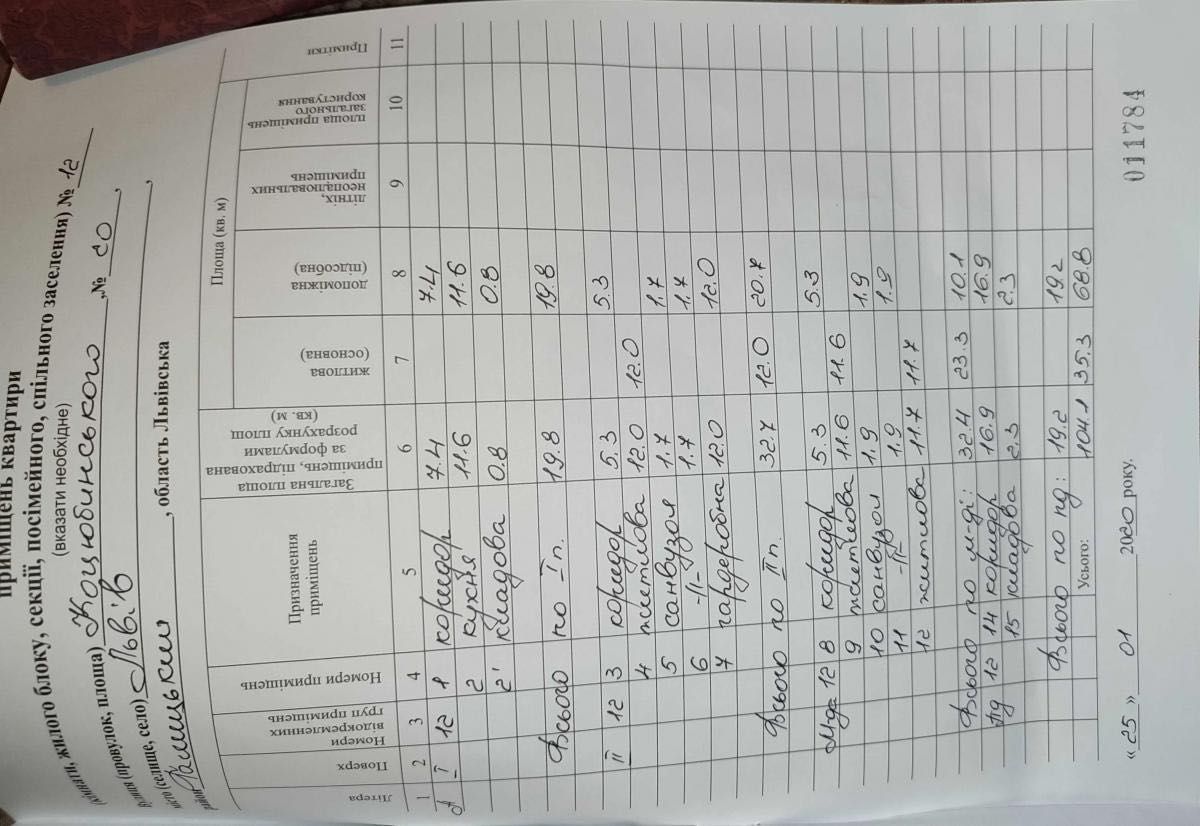 приміщень квартири
жилого блоку, секції, посімейного, спільного заселення) № 12
(вказати необхідне)
(провулок, площа) Коцюбинського, № 20,
(селище, село) Львів,
район Галицький, область Львівська
Літера Поверх Номери відокремлених груп приміщень Номери приміщень Призначення приміщень Загальна площа приміщень, підрахована за формулами розрахунку площ (кв. м) Площа (кв. м) Примітки
житлова (основна) допоміжна (підсобна) літніх, неопалювальних приміщень площа приміщень загального користування
1 2 3 4 5 6 7 8 9 10 11
А I 12 1 коридор 7.4 7.4
2 кухня 11.6 11.6
2' кладова 0.8 0.8
Всього по I п. 19.8 19.8
II 12 3 коридор 5.3 5.3
4 житлова 12.0 12.0
5 санвузол 1.7 1.7
6 -//- 1.7 1.7
7 гардеробна 12.0 12.0
Всього по II п. 32.7 12.0 20.7
Мда 12 8 коридор 5.3 5.3
9 житлова 11.6 11.6
10 санвузол 1.9 1.9
11 -//- 1.9 1.9
12 житлова 11.7 11.7
Всього по м-ді: 32.4 23.3 10.1
пд 12 14 коридор 16.9 16.9
15 кладова 2.3 2.3
Всього по пд: 19.2 19.2
Усього: 104.1 35.3 68.8
«25» 01 2020 року.
011784